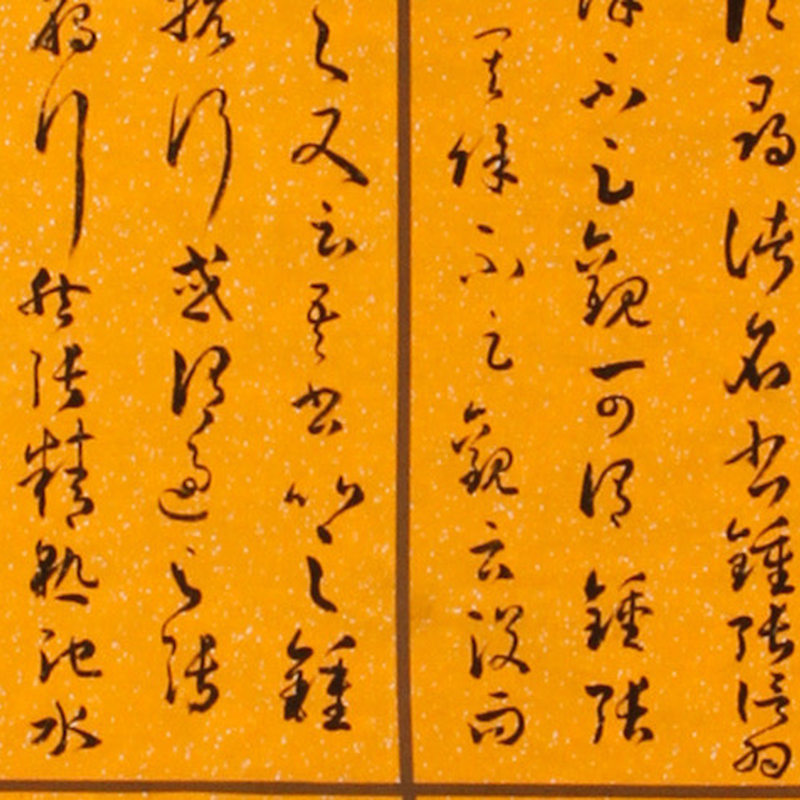 尋諸名書鍾張信為
餘不足觀可謂鍾張
其餘不足觀云没而
之又云吾書比之鍾
抗行或謂過之張
行然張精熟池水